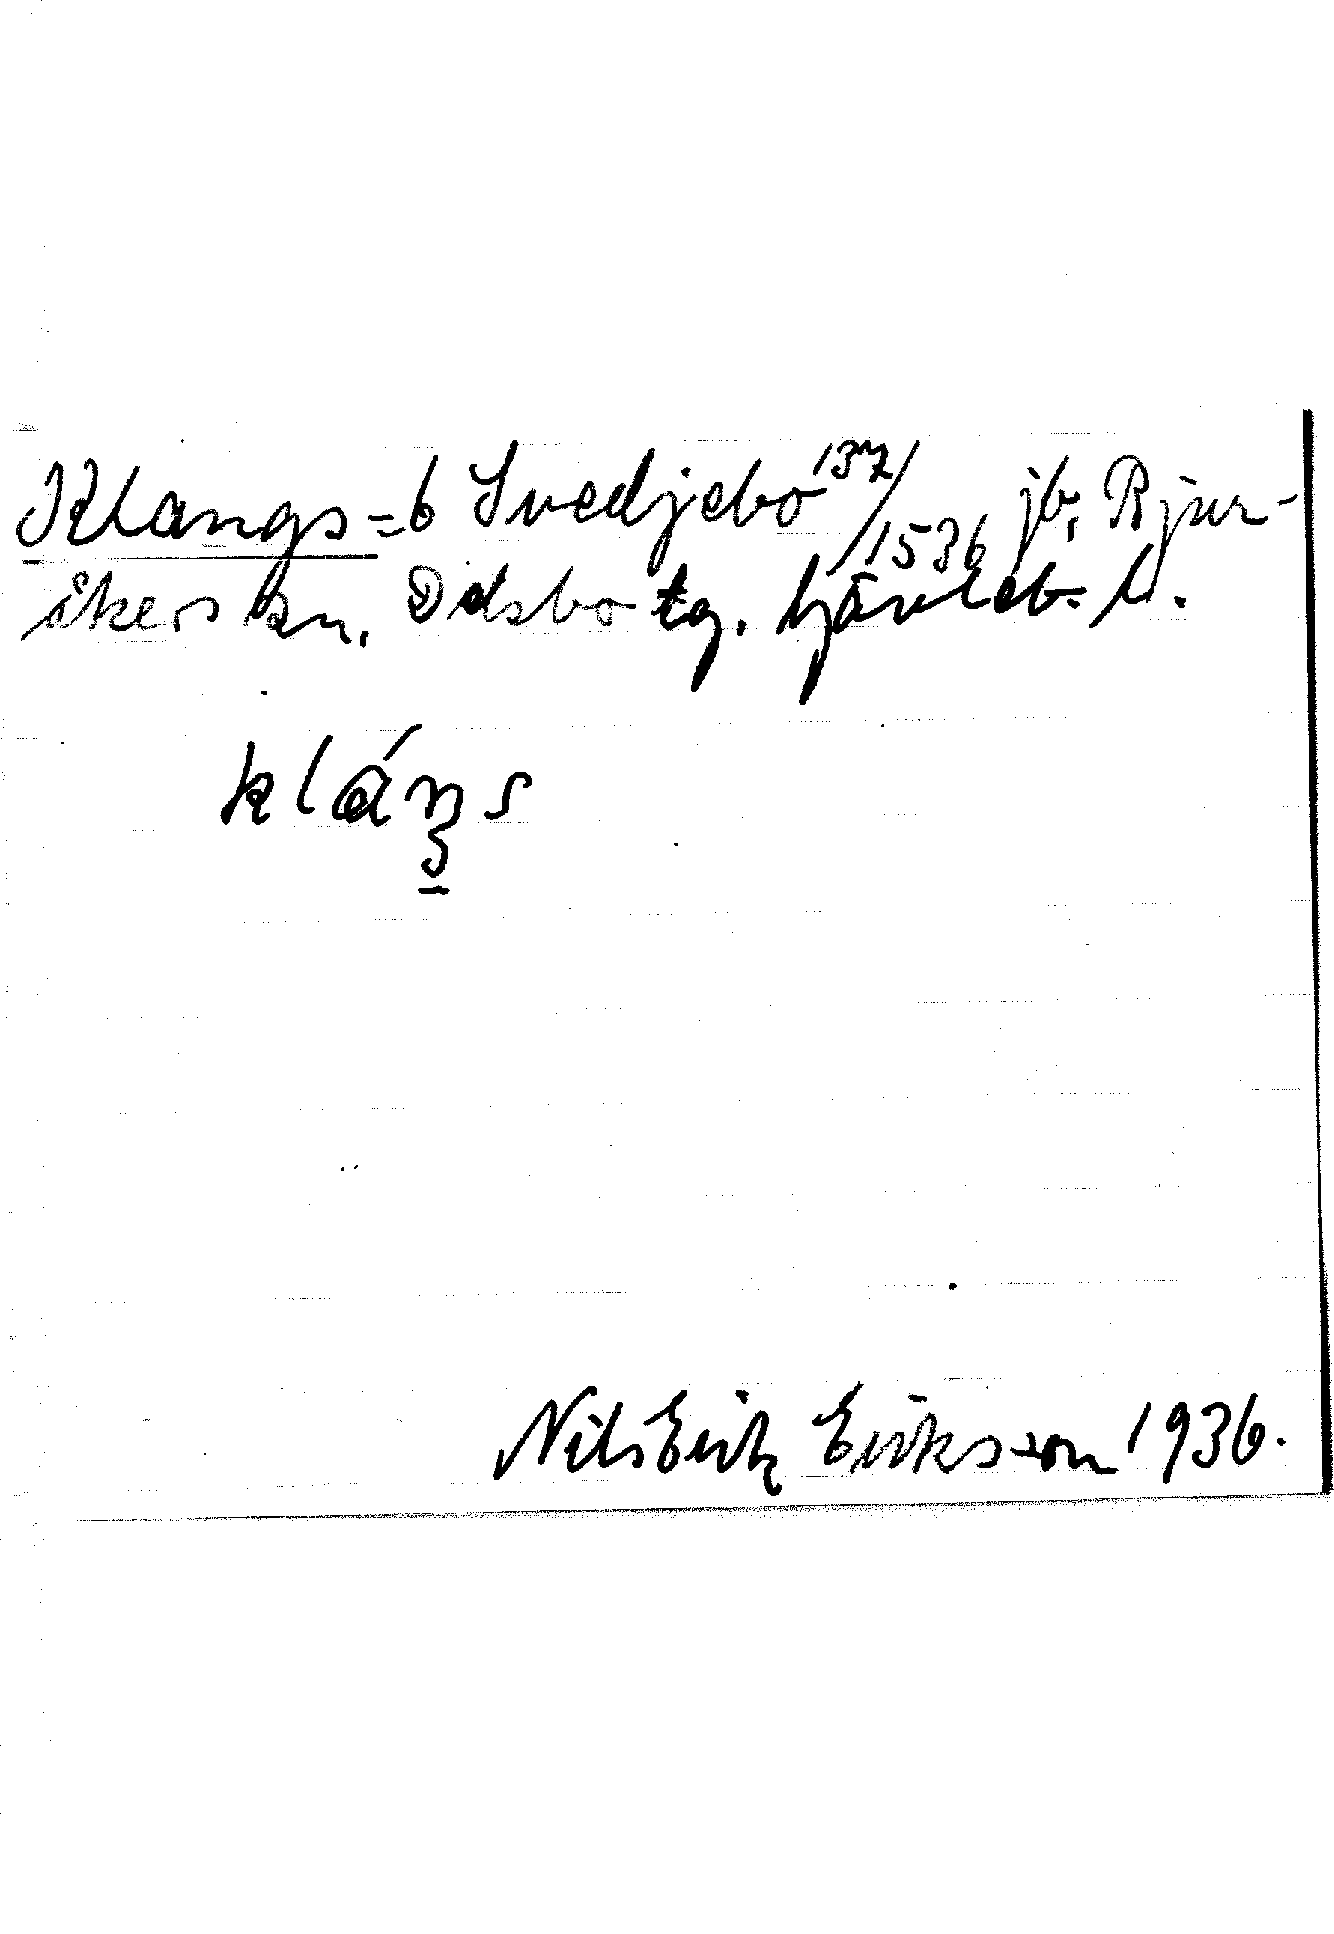 Klangs = 6 Svedjebo 137/1536 jb. Bjur-
åkers sn. Delsbo tg. Gävleb. l.
kláŋs
Nils Erik Eriksson 1936.